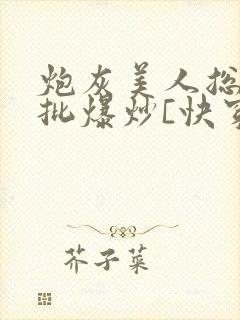 炮灰美人总
批爆炒[快穿
芥子菜